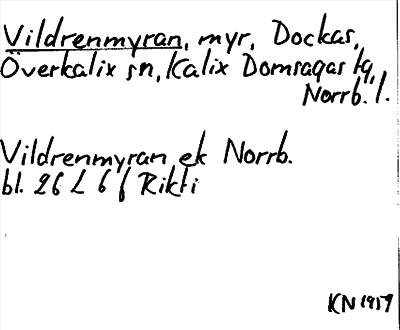 Vildrenmyran, myr, Dockas,
Överkalix sn, Kalix Domsagas tg,
Norrb. l.
Vildrenmyran ek Norrb.
bl. 26 L 6 f Rikti
KN 1957